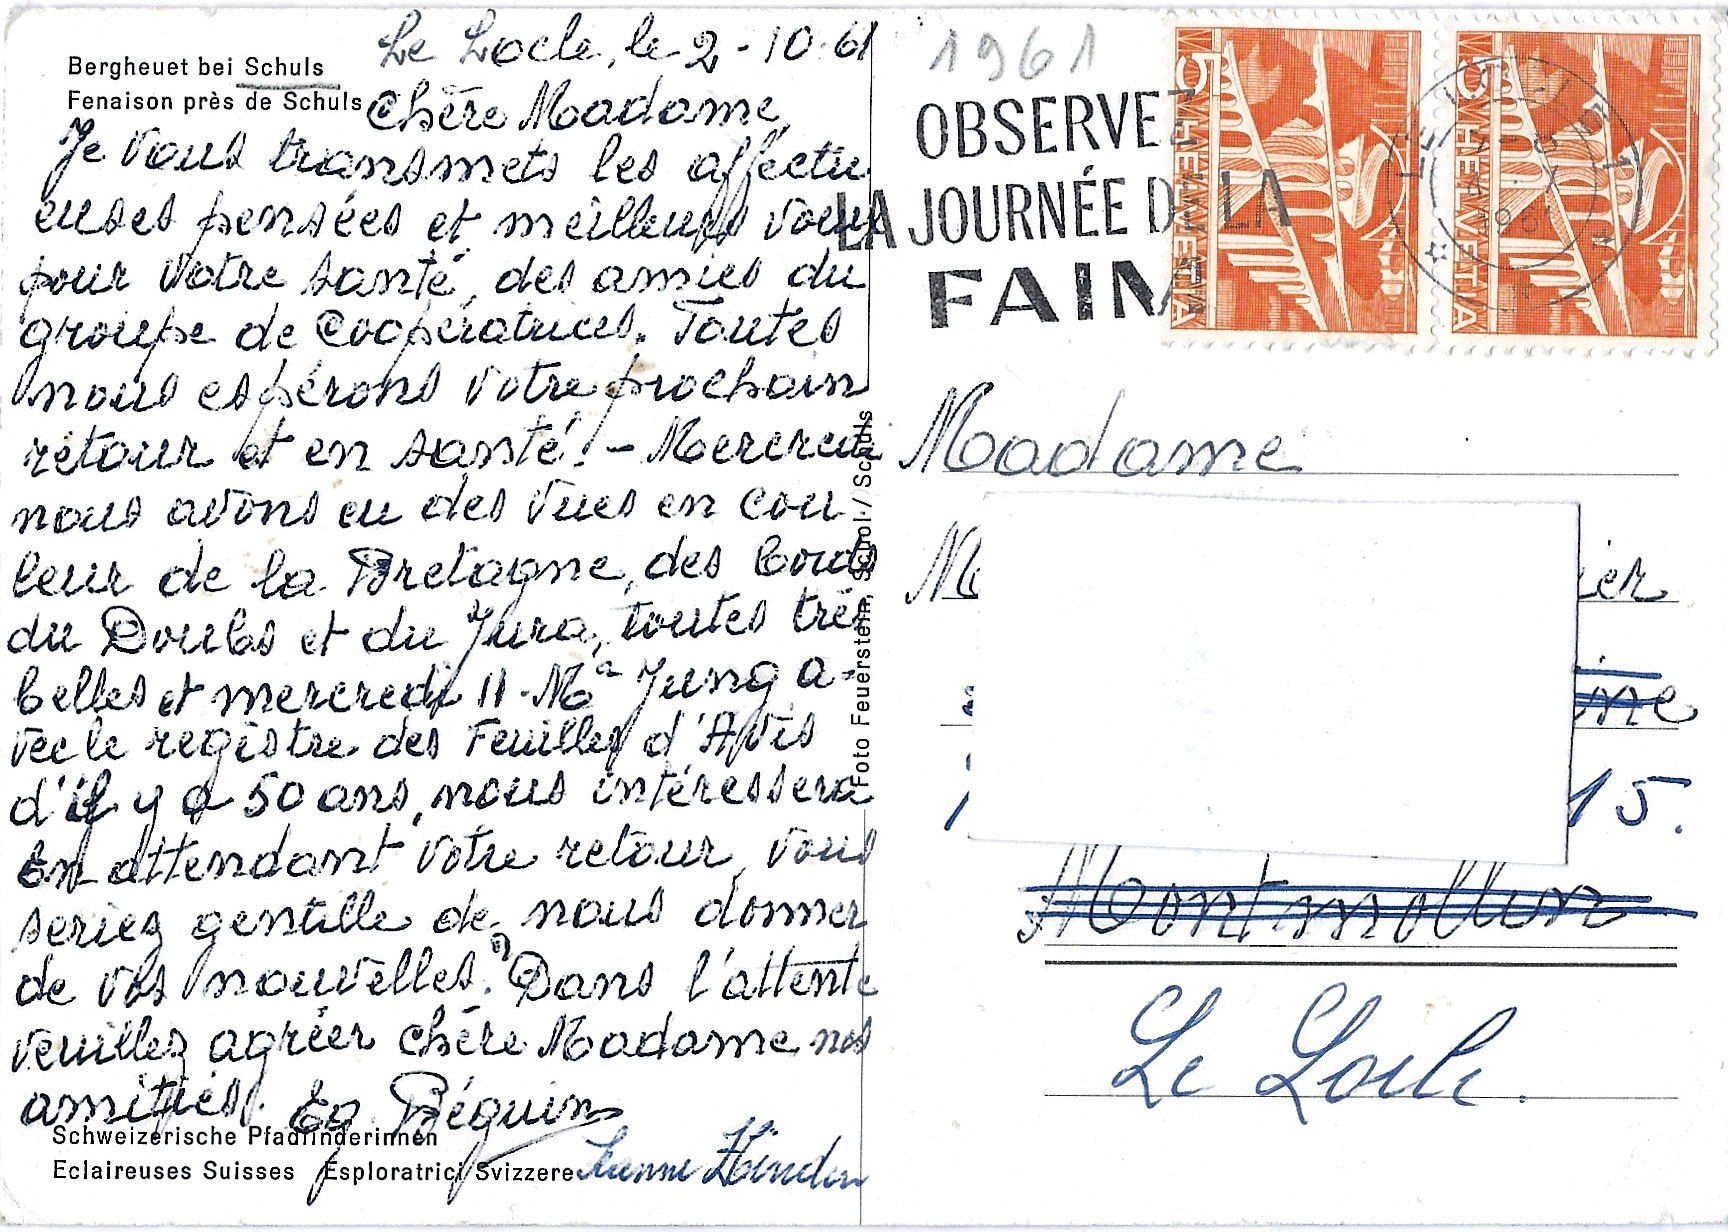 Bergheuet bei Schuls
Fenaison près de Schuls
Le Locle, le 2-10-61
Chère Madame,
Je vous transmets les affectu
euses pensées et meilleurs vœux
pour votre santé, des amies du
groupe de Coopératrices. Toutes
nous espérons votre prochain
retour et en santé! - Mercredi
nous avons eu des vues en cou-
leur de la Bretagne, des bords
du Doubs et du Jura, toutes très
belles et mercredi 11 - Ma Jung a-
vec le registre des Feuilles d'Avis
d'il y a 50 ans, nous intéressera
En attendant votre retour, vous
seriez gentille de nous donner
de vos nouvelles. Dans l'attente
veuillez agréer chère Madame nos
amitiés. Eg. Béguin
Jeanne Hinden
Schweizerische Pfadfinderinnen
Eclaireuses Suisses Esploratrici Svizzere
Foto Feuerstein, Scuol / Schuls
1961
OBSERVEZ
LA JOURNÉE DE LA
FAIM
5 HELVETIA
5 HELVETIA
LE LOCLE 1
Madame
M
ier
ine
15.
Montmollin
Le Locle.